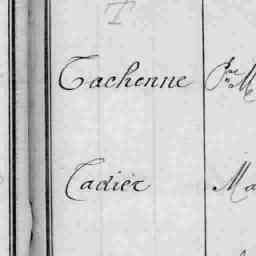 T
Tachenne
Tadiez Ma